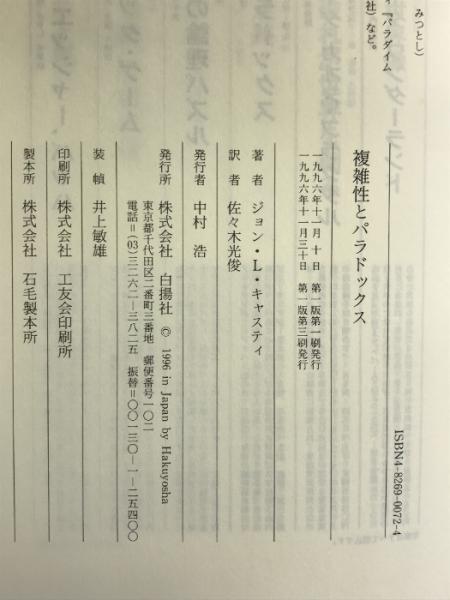 みつとし)
ィ『パラダイム
社)など。
ISBN4-8269-0072-4
複雑性とパラドックス
一九九六年十一月 十 日 第一版第一刷発行
一九九六年十一月三十日 第一版第三刷発行
著 者 ジョン・L・キャスティ
訳 者 佐々木光俊
発行者 中村 浩
発行所 株式会社 白揚社 © 1996 in Japan by Hakuyosha
東京都千代田区二番町三番地 郵便番号一〇二
電話＝(03)三二六二−三八二五 振替＝〇〇一三〇−一−二五四〇〇
装 幀 井上敏雄
印刷所 株式会社 工友会印刷所
製本所 株式会社 石毛製本所